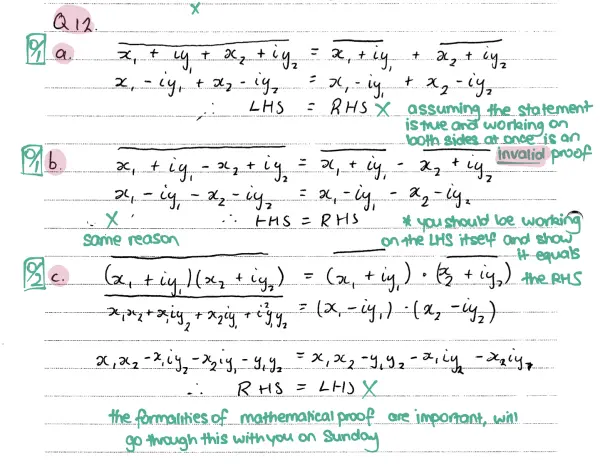 x
Q12.
0/1 a. \overline{x₁ + iy₁ + x₂ + iy₂} = \overline{x₁ + iy₁} + \overline{x₂ + iy₂}
x₁ - iy₁ + x₂ - iy₂ = x₁ - iy₁ + x₂ - iy₂
∴ LHS = RHS x assuming the statement
is true and working on
both sides at once is an
invalid proof
0/1 b. \overline{x₁ + iy₁ - x₂ + iy₂} = \overline{x₁ + iy₁} - \overline{x₂ + iy₂}
x₁ - iy₁ - x₂ - iy₂ = x₁ - iy₁ - x₂ - iy₂
x ∴ LHS = RHS * you should be working
same reason on the LHS itself and show
it equals
the RHS
0/2 c. \overline{(x₁ + iy₁)(x₂ + iy₂)} = \overline{(x₁ + iy₁)} · \overline{(x₂ + iy₂)}
\overline{x₁x₂ + x₁iy₂ + x₂iy₁ + i²y₁y₂} = (x₁ - iy₁) · (x₂ - iy₂)
x₁x₂ - x₁iy₂ - x₂iy₁ - y₁y₂ = x₁x₂ - y₁y₂ - x₁iy₂ - x₂iy₁
∴ RHS = LHS x
the formalities of mathematical proof are important, will
go through this with you on Sunday